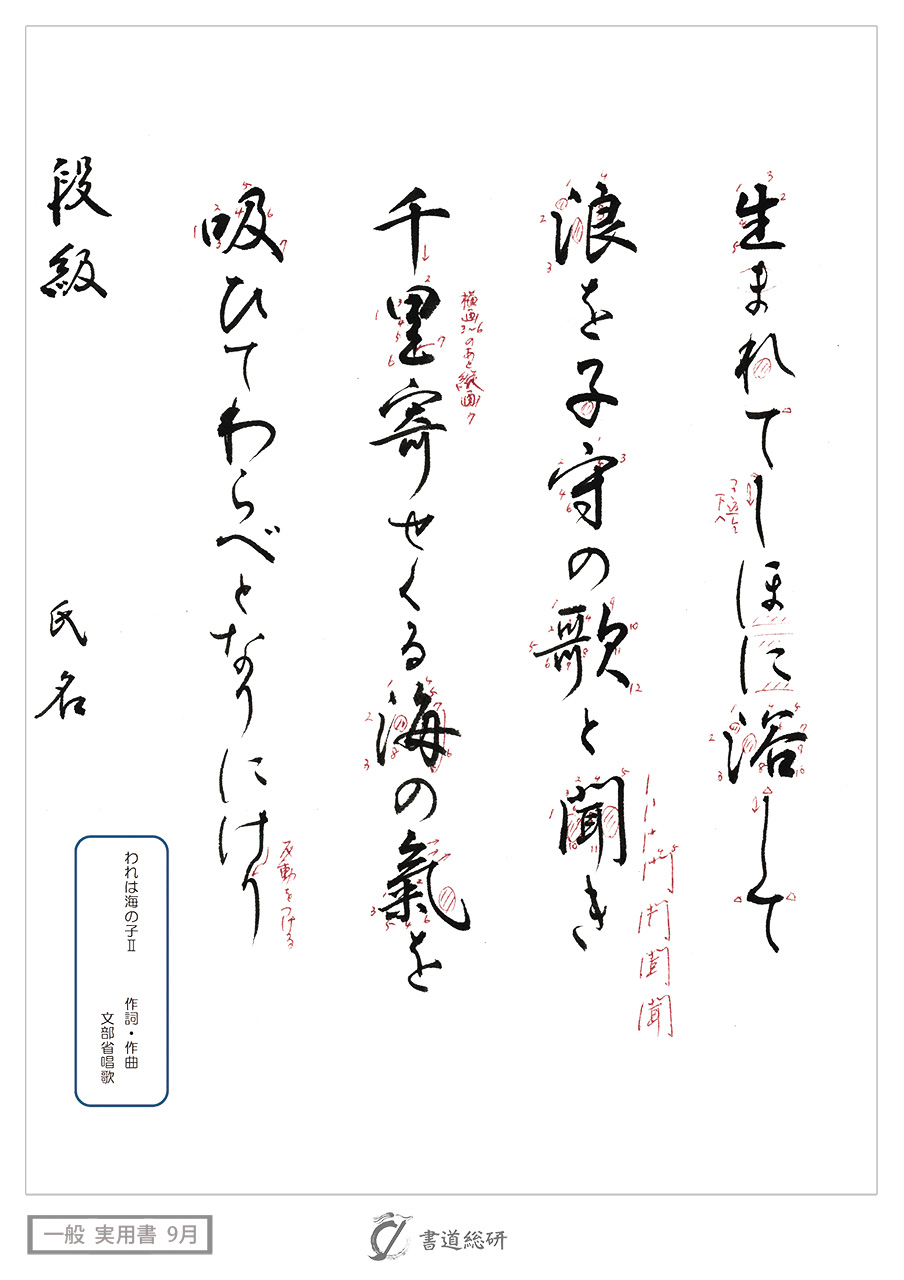 生まれてしほに浴して
下へ
浪を子守の歌と聞き
千里寄せくる海の氣を
横画3〜6のあと縦画7
吸ひてわらべとなりにけり
反動をつける
段級 氏名
われは海の子Ⅱ 作詞・作曲
文部省唱歌
一般 実用書 9月
書道総研